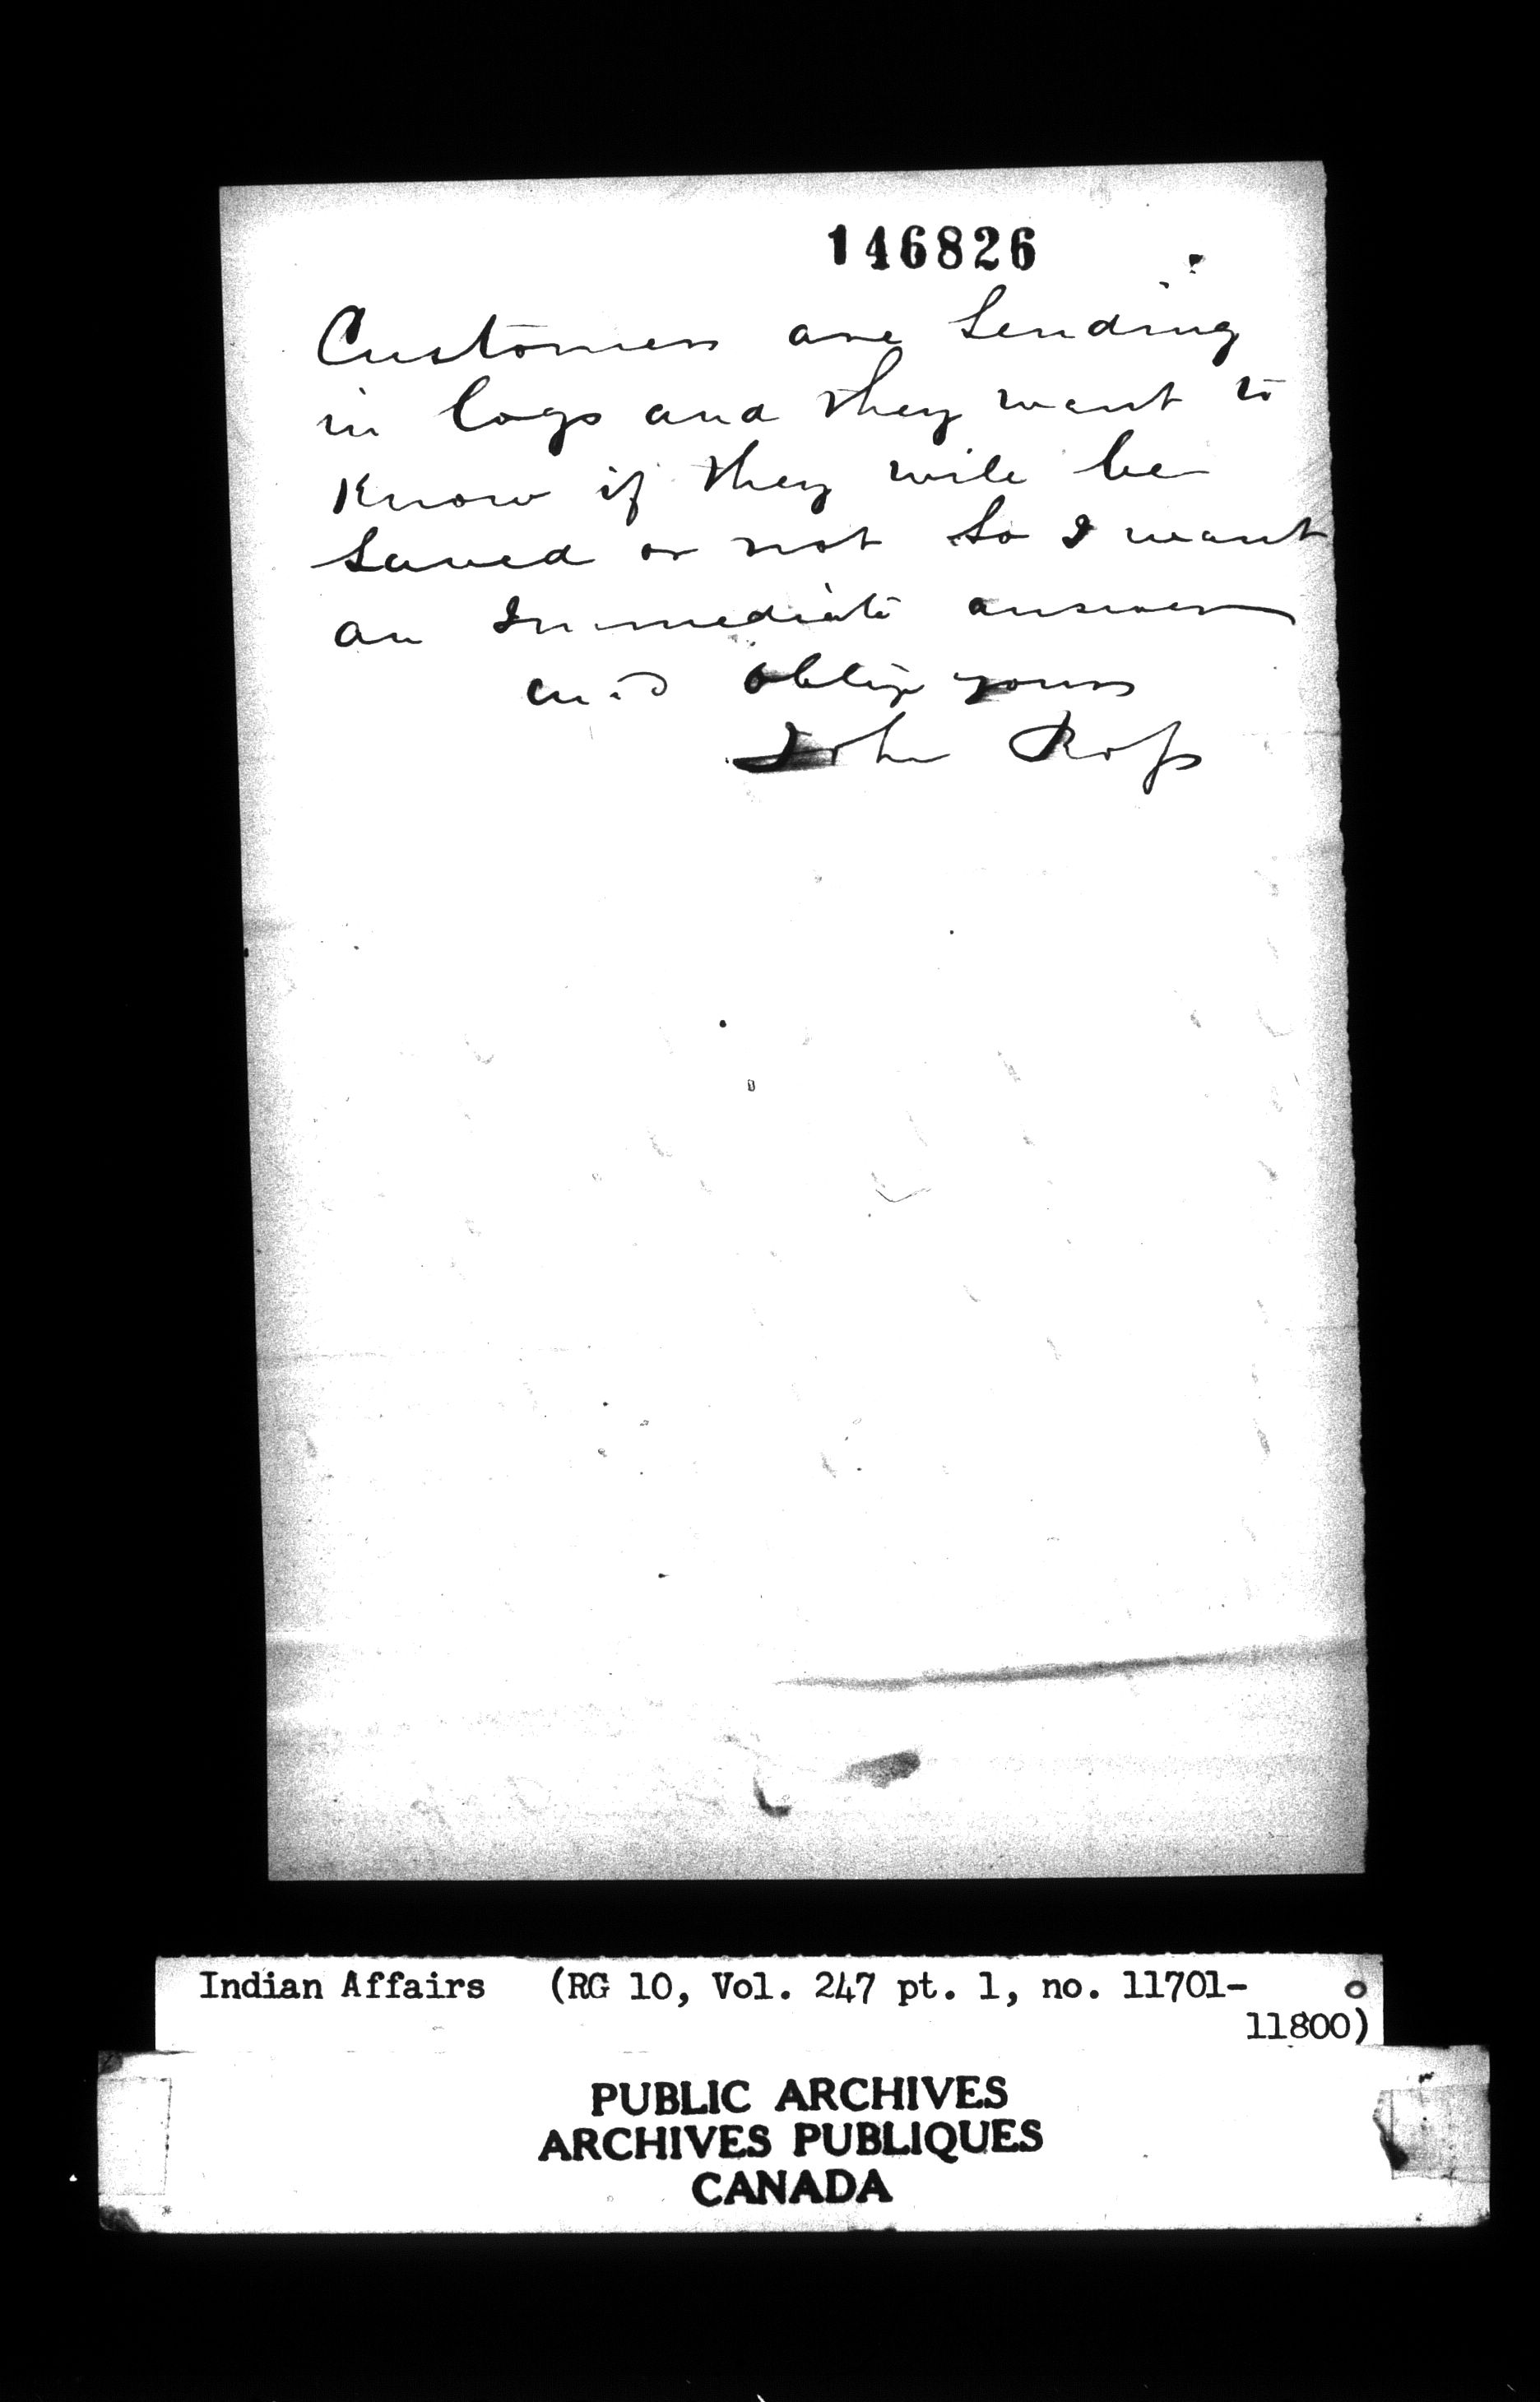 146826
Customers are Sending
in logs and they want to
Know if they will be
Sawed or not So I want
an Immediate answer
and oblige yours
John Ross
Indian Affairs (RG 10, Vol. 247 pt. 1, no. 11701-
11800)
PUBLIC ARCHIVES
ARCHIVES PUBLIQUES
CANADA